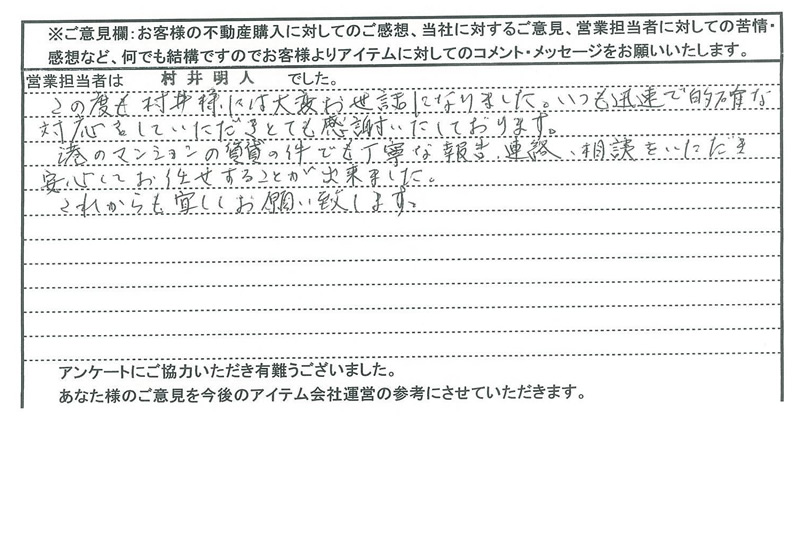 ※ご意見欄:お客様の不動産購入に対してのご感想、当社に対するご意見、営業担当者に対しての苦情・
感想など、何でも結構ですのでお客様よりアイテムに対してのコメント・メッセージをお願いいたします。
営業担当者は 村井明人 でした。
この度も村井様には大変お世話になりました。いつも迅速で的確な
対応をしていただきとても感謝いたしております。
港のマンションの賃貸の件でも丁寧な報告、連絡、相談をいただき
安心してお任せすることが出来ました。
これからも宜しくお願い致します。
アンケートにご協力いただき有難うございました。
あなた様のご意見を今後のアイテム会社運営の参考にさせていただきます。